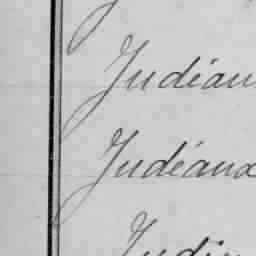 Judéau
Judéaux
Judi